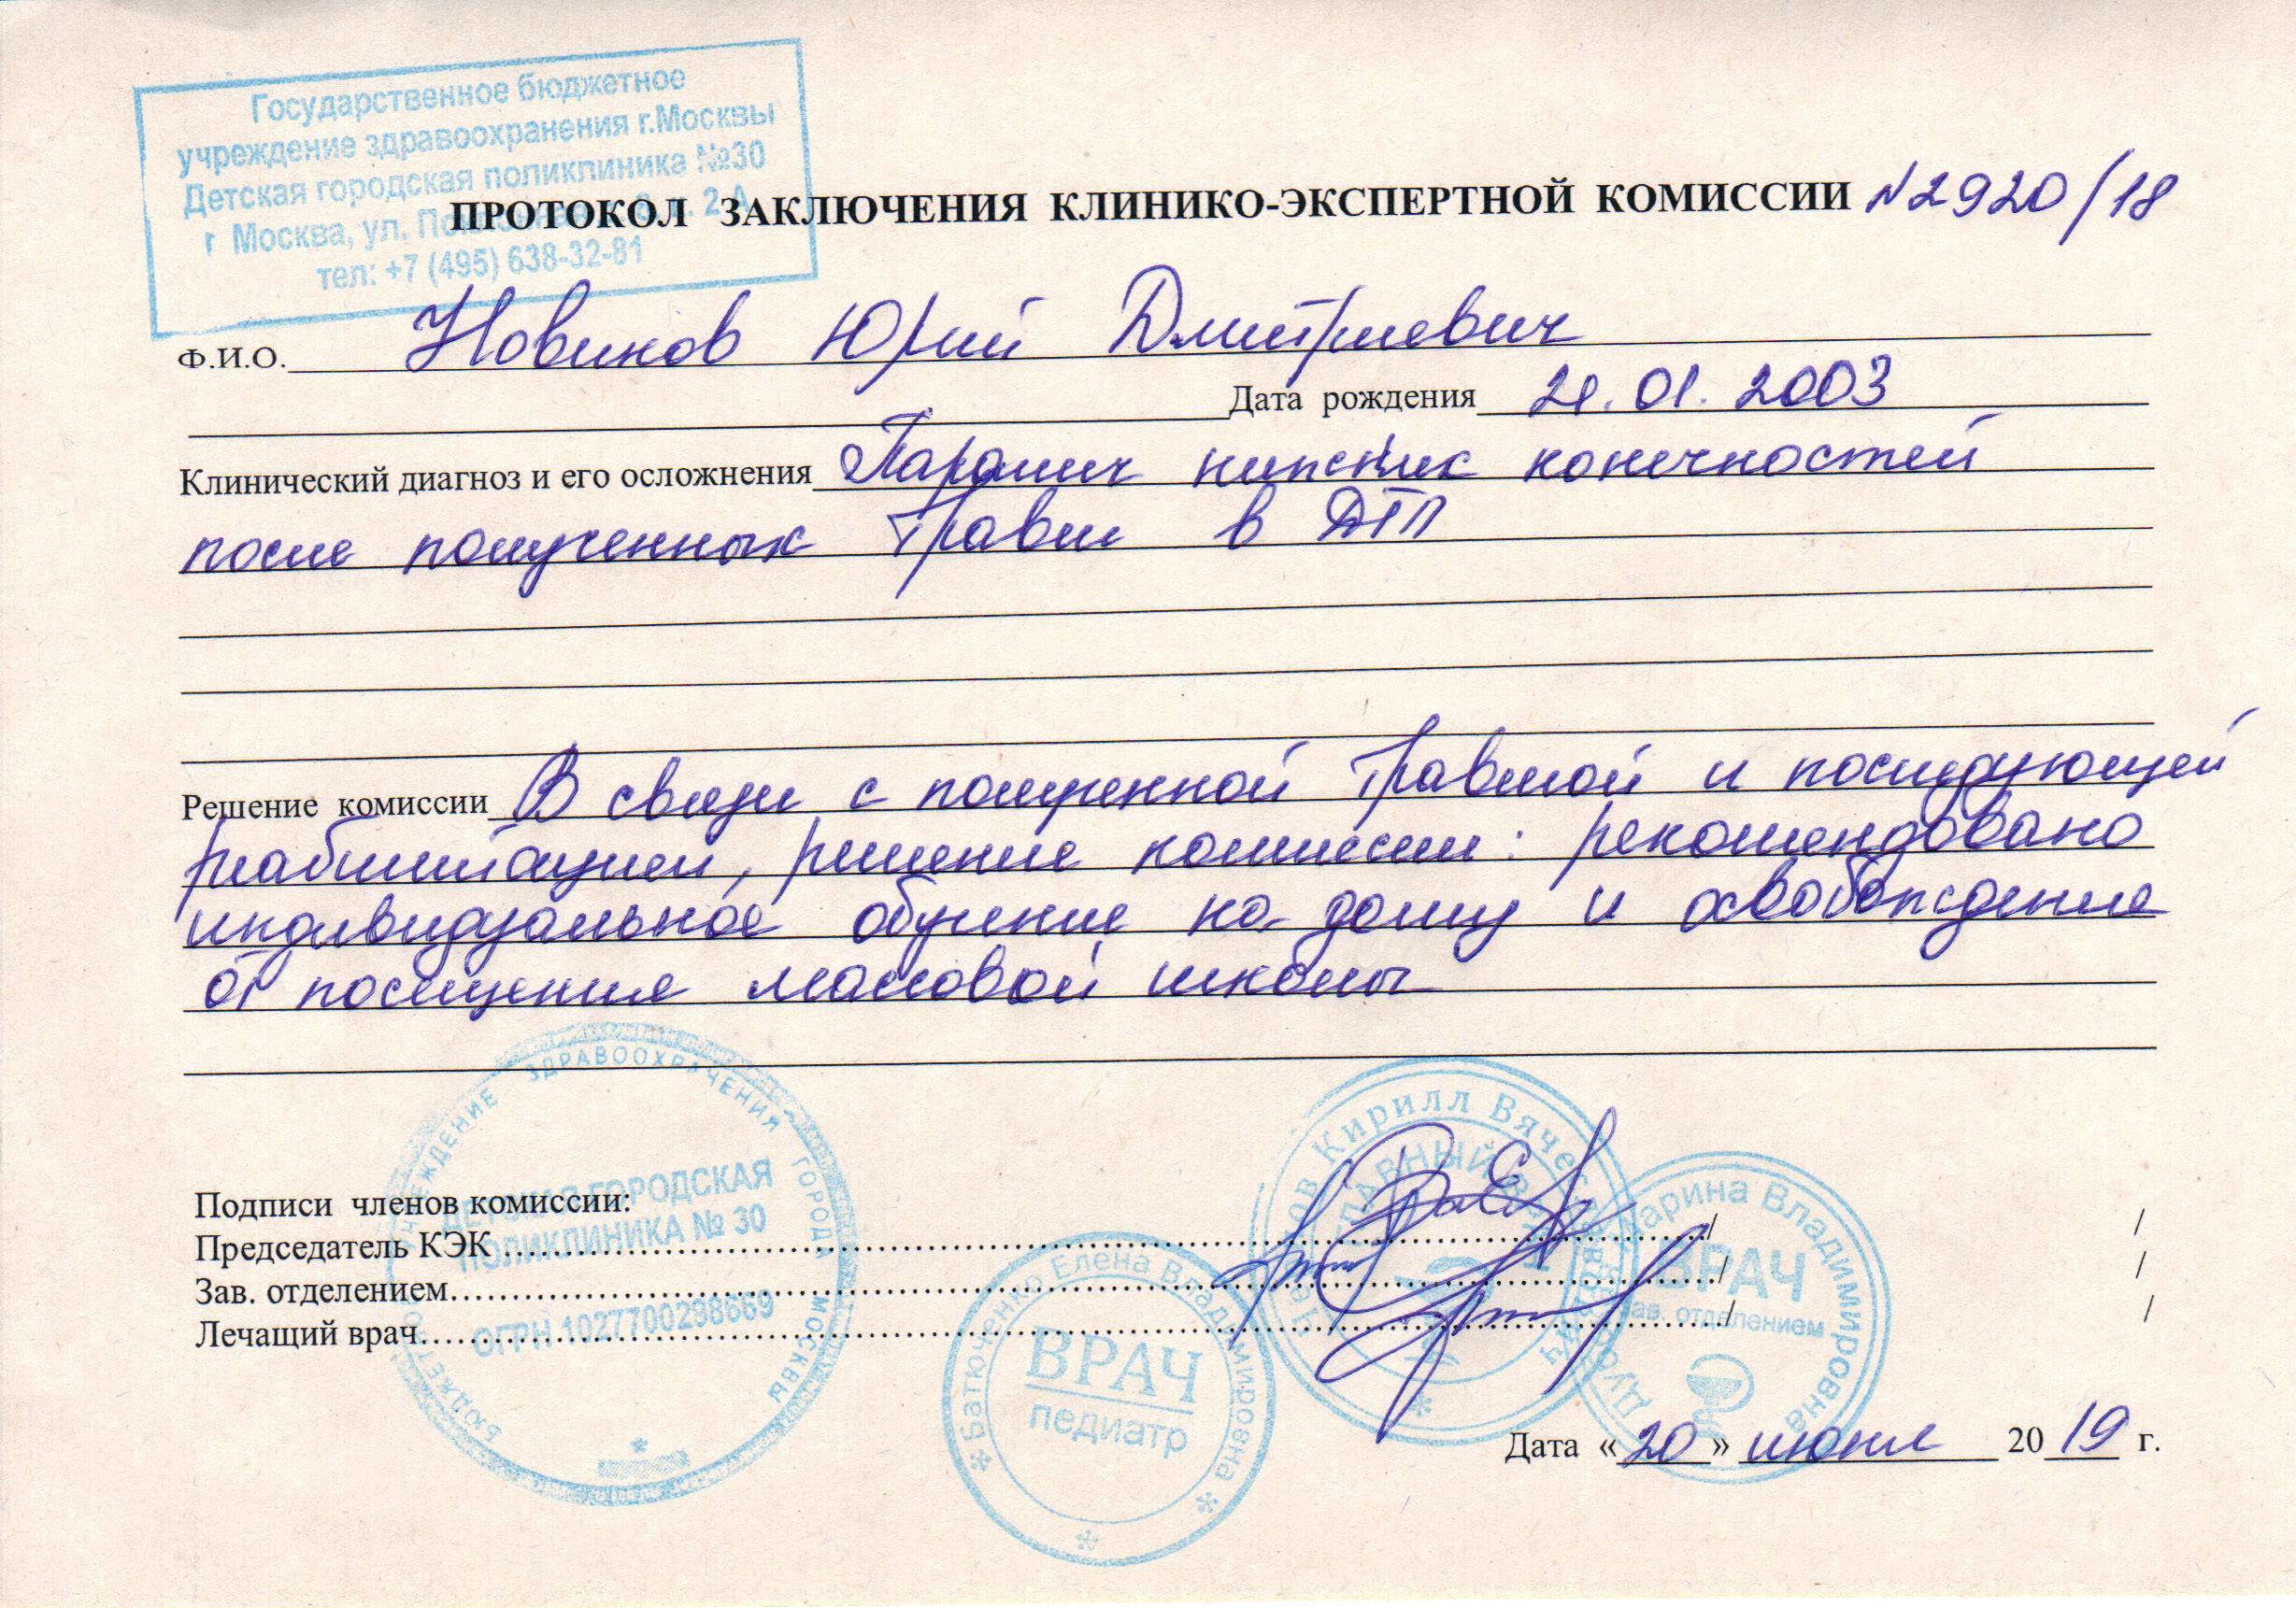 Государственное бюджетное
учреждение здравоохранения г.Москвы
Детская городская поликлиника №30
г Москва, ул.
тел: +7 (495) 638-32-81
ПРОТОКОЛ ЗАКЛЮЧЕНИЯ КЛИНИКО-ЭКСПЕРТНОЙ КОМИССИИ N2920/18
Ф.И.О. Новиков Юрий Дмитриевич
Дата рождения 21.01.2003
Клинический диагноз и его осложнения Паралич нижних конечностей
после полученных травм в ДТП
Решение комиссии В связи с полученной травмой и последующей
реабилитацией, решение комиссии: рекомендовано
индивидуальное обучение на дому и освобождение
от посещения массовой школы
УЧРЕЖДЕНИЕ ЗДРАВООХРАНЕНИЯ ГОРОДА МОСКВЫ
ДЕТСКАЯ ГОРОДСКАЯ
ПОЛИКЛИНИКА № 30
ОГРН 1027700298669
Подписи членов комиссии:
Председатель КЭК ........ / /
Зав. отделением ........ / /
Лечащий врач ........ / /
Батюченко Елена Владимировна
ВРАЧ
педиатр
Кирилл Вячеславович
ГЛАВНЫЙ ВРАЧ
Марина Владимировна
ВРАЧ
Зав. отделением
Дата «20» июня 2019 г.